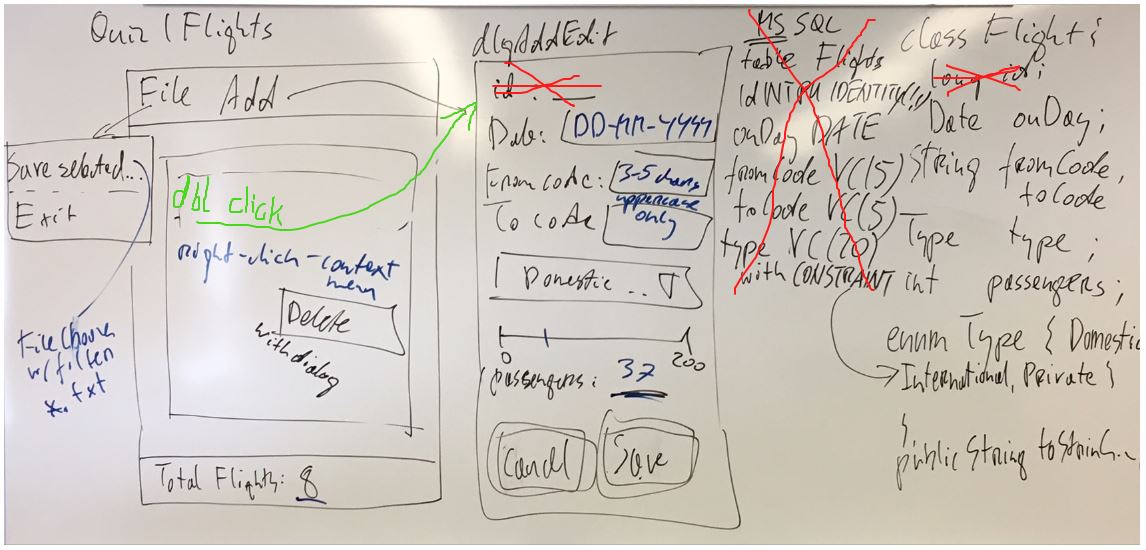 Quiz 1 Flights
File Add
Save selected...
Exit
dbl click
right-click-context
menu
Delete
with dialog
File Chooser
w/ filter
*.txt
Total Flights: 8
dlgAddEdit
id:
Date: DD-MM-YYYY
From code: 3-5 chars
uppercase
only
To code
Domestic...
0
200
passengers: 37
Cancel
Save
MS SQL
table Flights
id INT PK IDENTITY!!!
onDay DATE
fromCode VC(5)
toCode VC(5)
type VC(20)
with CONSTRAINT
class Flight {
long id;
Date onDay;
String fromCode,
toCode
Type type;
int passengers;
enum Type { Domestic
International, Private }
}
public String toString...